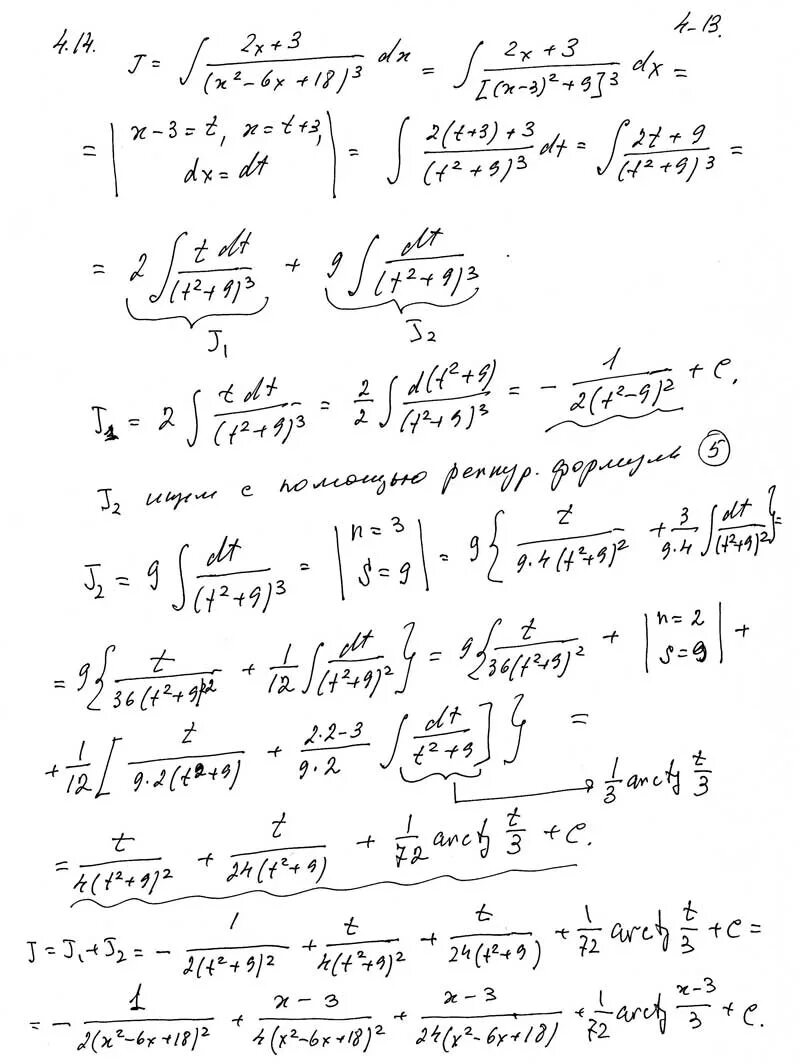 4-13.
4.14. J = ∫ (2x+3)/(x²-6x+18)³ dx = ∫ (2x+3)/[(x-3)²+9]³ dx =
= | x-3=t, x=t+3, dx=dt | = ∫ (2(t+3)+3)/(t²+9)³ dt = ∫ (2t+9)/(t²+9)³ =
= 2 ∫ (t dt)/(t²+9)³ + 9 ∫ dt/(t²+9)³.
J₁ J₂
J₁ = 2 ∫ (t dt)/(t²+9)³ = 2/2 ∫ d(t²+9)/(t²+9)³ = - 1/(2(t²-9)²) + C.
J₂ ищем с помощью рекур. формулы ⑤
J₂ = 9 ∫ dt/(t²+9)³ = | n=3 S=9 | = 9{ t/(9·4(t²+9)²) + 3/(9·4) ∫ dt/(t²+9)² } =
= 9{ t/(36(t²+9)²) + 1/12 ∫ dt/(t²+9)² } = 9{ t/(36(t²+9)²) + | n=2 S=9 | +
+ 1/12 [ t/(9·2(t²+9)) + (2·2-3)/(9·2) ∫ dt/(t²+9) ] } =
1/3 arctg t/3
= t/(4(t²+9)²) + t/(24(t²+9)) + 1/72 arctg t/3 + C.
J = J₁+J₂ = - 1/(2(t²+9)²) + t/(4(t²+9)²) + t/(24(t²+9)) + 1/72 arctg t/3 + C =
= - 1/(2(x²-6x+18)²) + (x-3)/(4(x²-6x+18)²) + (x-3)/(24(x²-6x+18)) + 1/72 arctg (x-3)/3 + C.